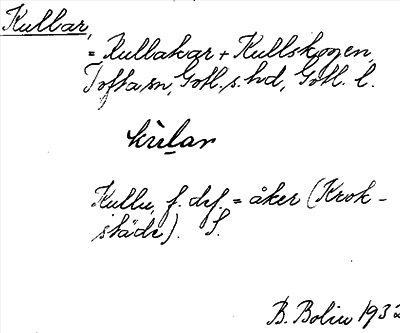 Kullar,
= Kullakar + Kullskogen,
Tofta sn, Gotl. s. hd, Gotl. l.
kùlar
Kullu, f. def. = åker (Krok-
städe). S.
B. Bolin 1932